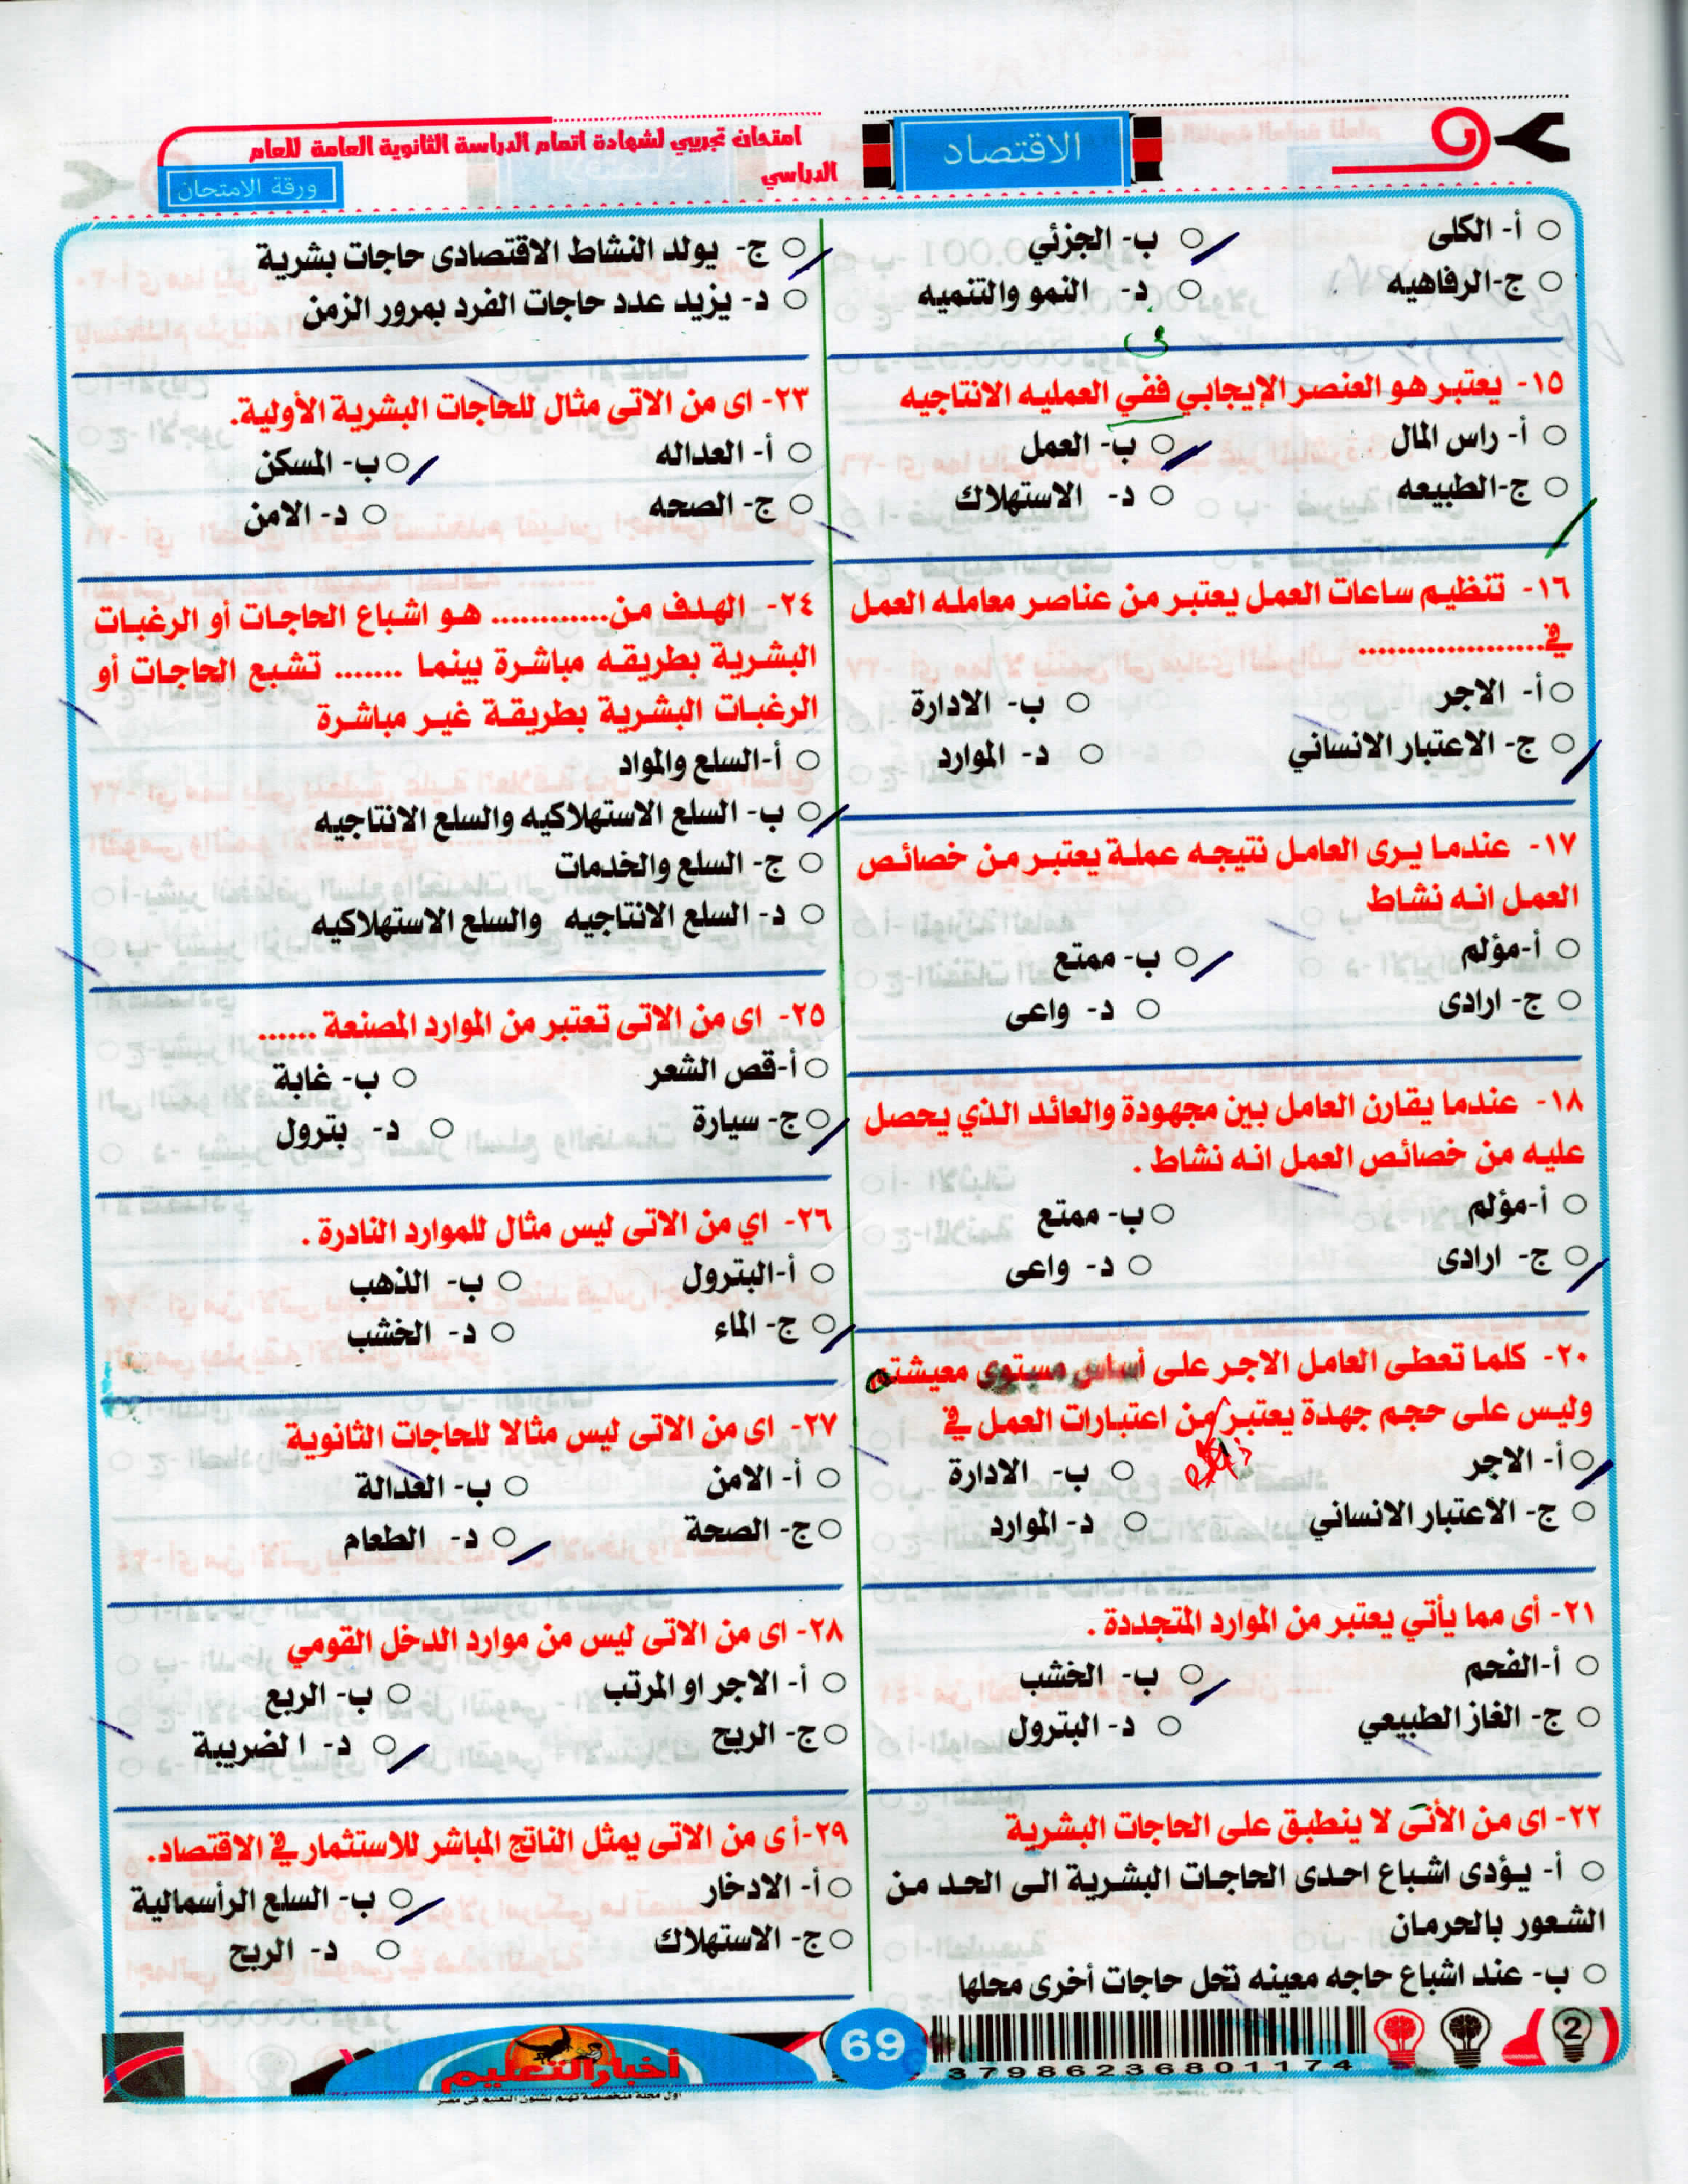 امتحان تجريبي لشهادة اتمام الدراسة الثانوية العامة للعام
الدراسي
الاقتصاد
ورقة الامتحان
أ- الكلى
ب- الجزئي
ج-الرفاهيه
د- النمو والتنميه
١٥- يعتبر هو العنصر الإيجابي ففي العمليه الانتاجيه
أ- راس المال
ب- العمل
ج-الطبيعه
د- الاستهلاك
١٦- تنظيم ساعات العمل يعتبر من عناصر معامله العمل
في...................
أ- الاجر
ب- الادارة
ج- الاعتبار الانساني
د- الموارد
١٧- عندما يرى العامل نتيجه عملة يعتبر من خصائص
العمل انه نشاط
أ-مؤلم
ب- ممتع
ج- ارادى
د- واعى
١٨- عندما يقارن العامل بين مجهودة والعائد الذي يحصل
عليه من خصائص العمل انه نشاط .
أ-مؤلم
ب- ممتع
ج- ارادى
د- واعى
٢٠- كلما تعطى العامل الاجر على أساس مستوى معيشته
وليس على حجم جهدة يعتبر من اعتبارات العمل في
أ- الاجر
ب- الادارة
ج- الاعتبار الانساني
د- الموارد
٢١- أى مما يأتي يعتبر من الموارد المتجددة .
أ-الفحم
ب- الخشب
ج- الغاز الطبيعي
د- البترول
٢٢- اى من الأتى لا ينطبق على الحاجات البشرية
أ- يؤدى اشباع احدى الحاجات البشرية الى الحد من
الشعور بالحرمان
ب- عند اشباع حاجه معينه تحل حاجات أخرى محلها
ج- يولد النشاط الاقتصادى حاجات بشرية
د- يزيد عدد حاجات الفرد بمرور الزمن
٢٣- اى من الاتى مثال للحاجات البشرية الأولية.
أ- العداله
ب- المسكن
ج- الصحه
د- الامن
٢٤- الهدف من............ هو اشباع الحاجات أو الرغبات
البشرية بطريقه مباشرة بينما ....... تشبع الحاجات أو
الرغبات البشرية بطريقة غير مباشرة
أ-السلع والمواد
ب- السلع الاستهلاكيه والسلع الانتاجيه
ج- السلع والخدمات
د- السلع الانتاجيه والسلع الاستهلاكيه
٢٥- اى من الاتى تعتبر من الموارد المصنعة ......
أ-قص الشعر
ب- غابة
ج- سيارة
د- بترول
٢٦- اي من الاتى ليس مثال للموارد النادرة .
أ-البترول
ب- الذهب
ج- الماء
د- الخشب
٢٧- اى من الاتى ليس مثالا للحاجات الثانوية
أ- الامن
ب- العدالة
ج- الصحة
د- الطعام
٢٨- اى من الاتى ليس من موارد الدخل القومي
أ- الاجر او المرتب
ب- الريع
ج- الربح
د- الضريبة
٢٩-أ ى من الاتى يمثل الناتج المباشر للاستثمار في الاقتصاد.
أ- الادخار
ب- السلع الرأسمالية
ج- الاستهلاك
د- الربح
2
37986236801174
69
أخبار التعليم
اول مجلة متخصصة تهتم بشئون التعليم في مصر